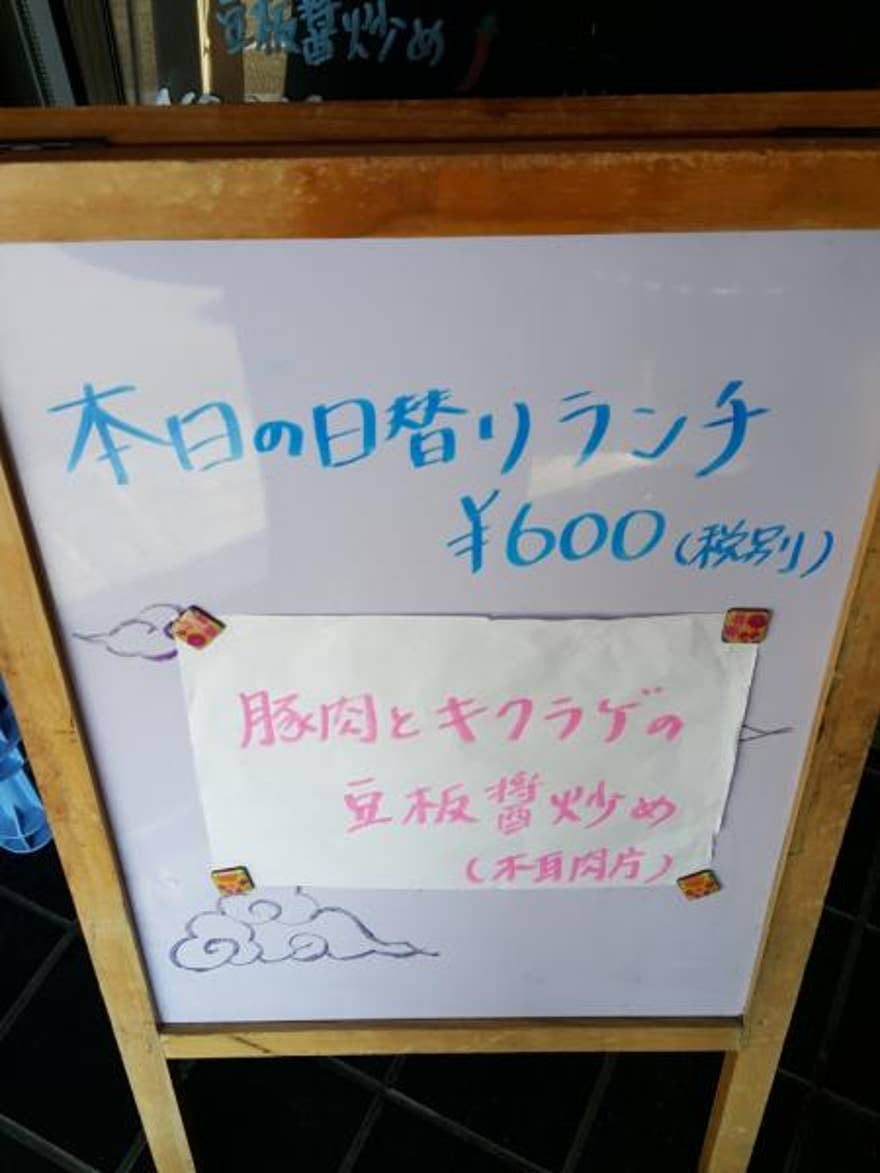 豆板醤炒め
本日の日替りランチ
¥600(税別)
豚肉とキクラゲの
豆板醤炒め
(木耳肉片)